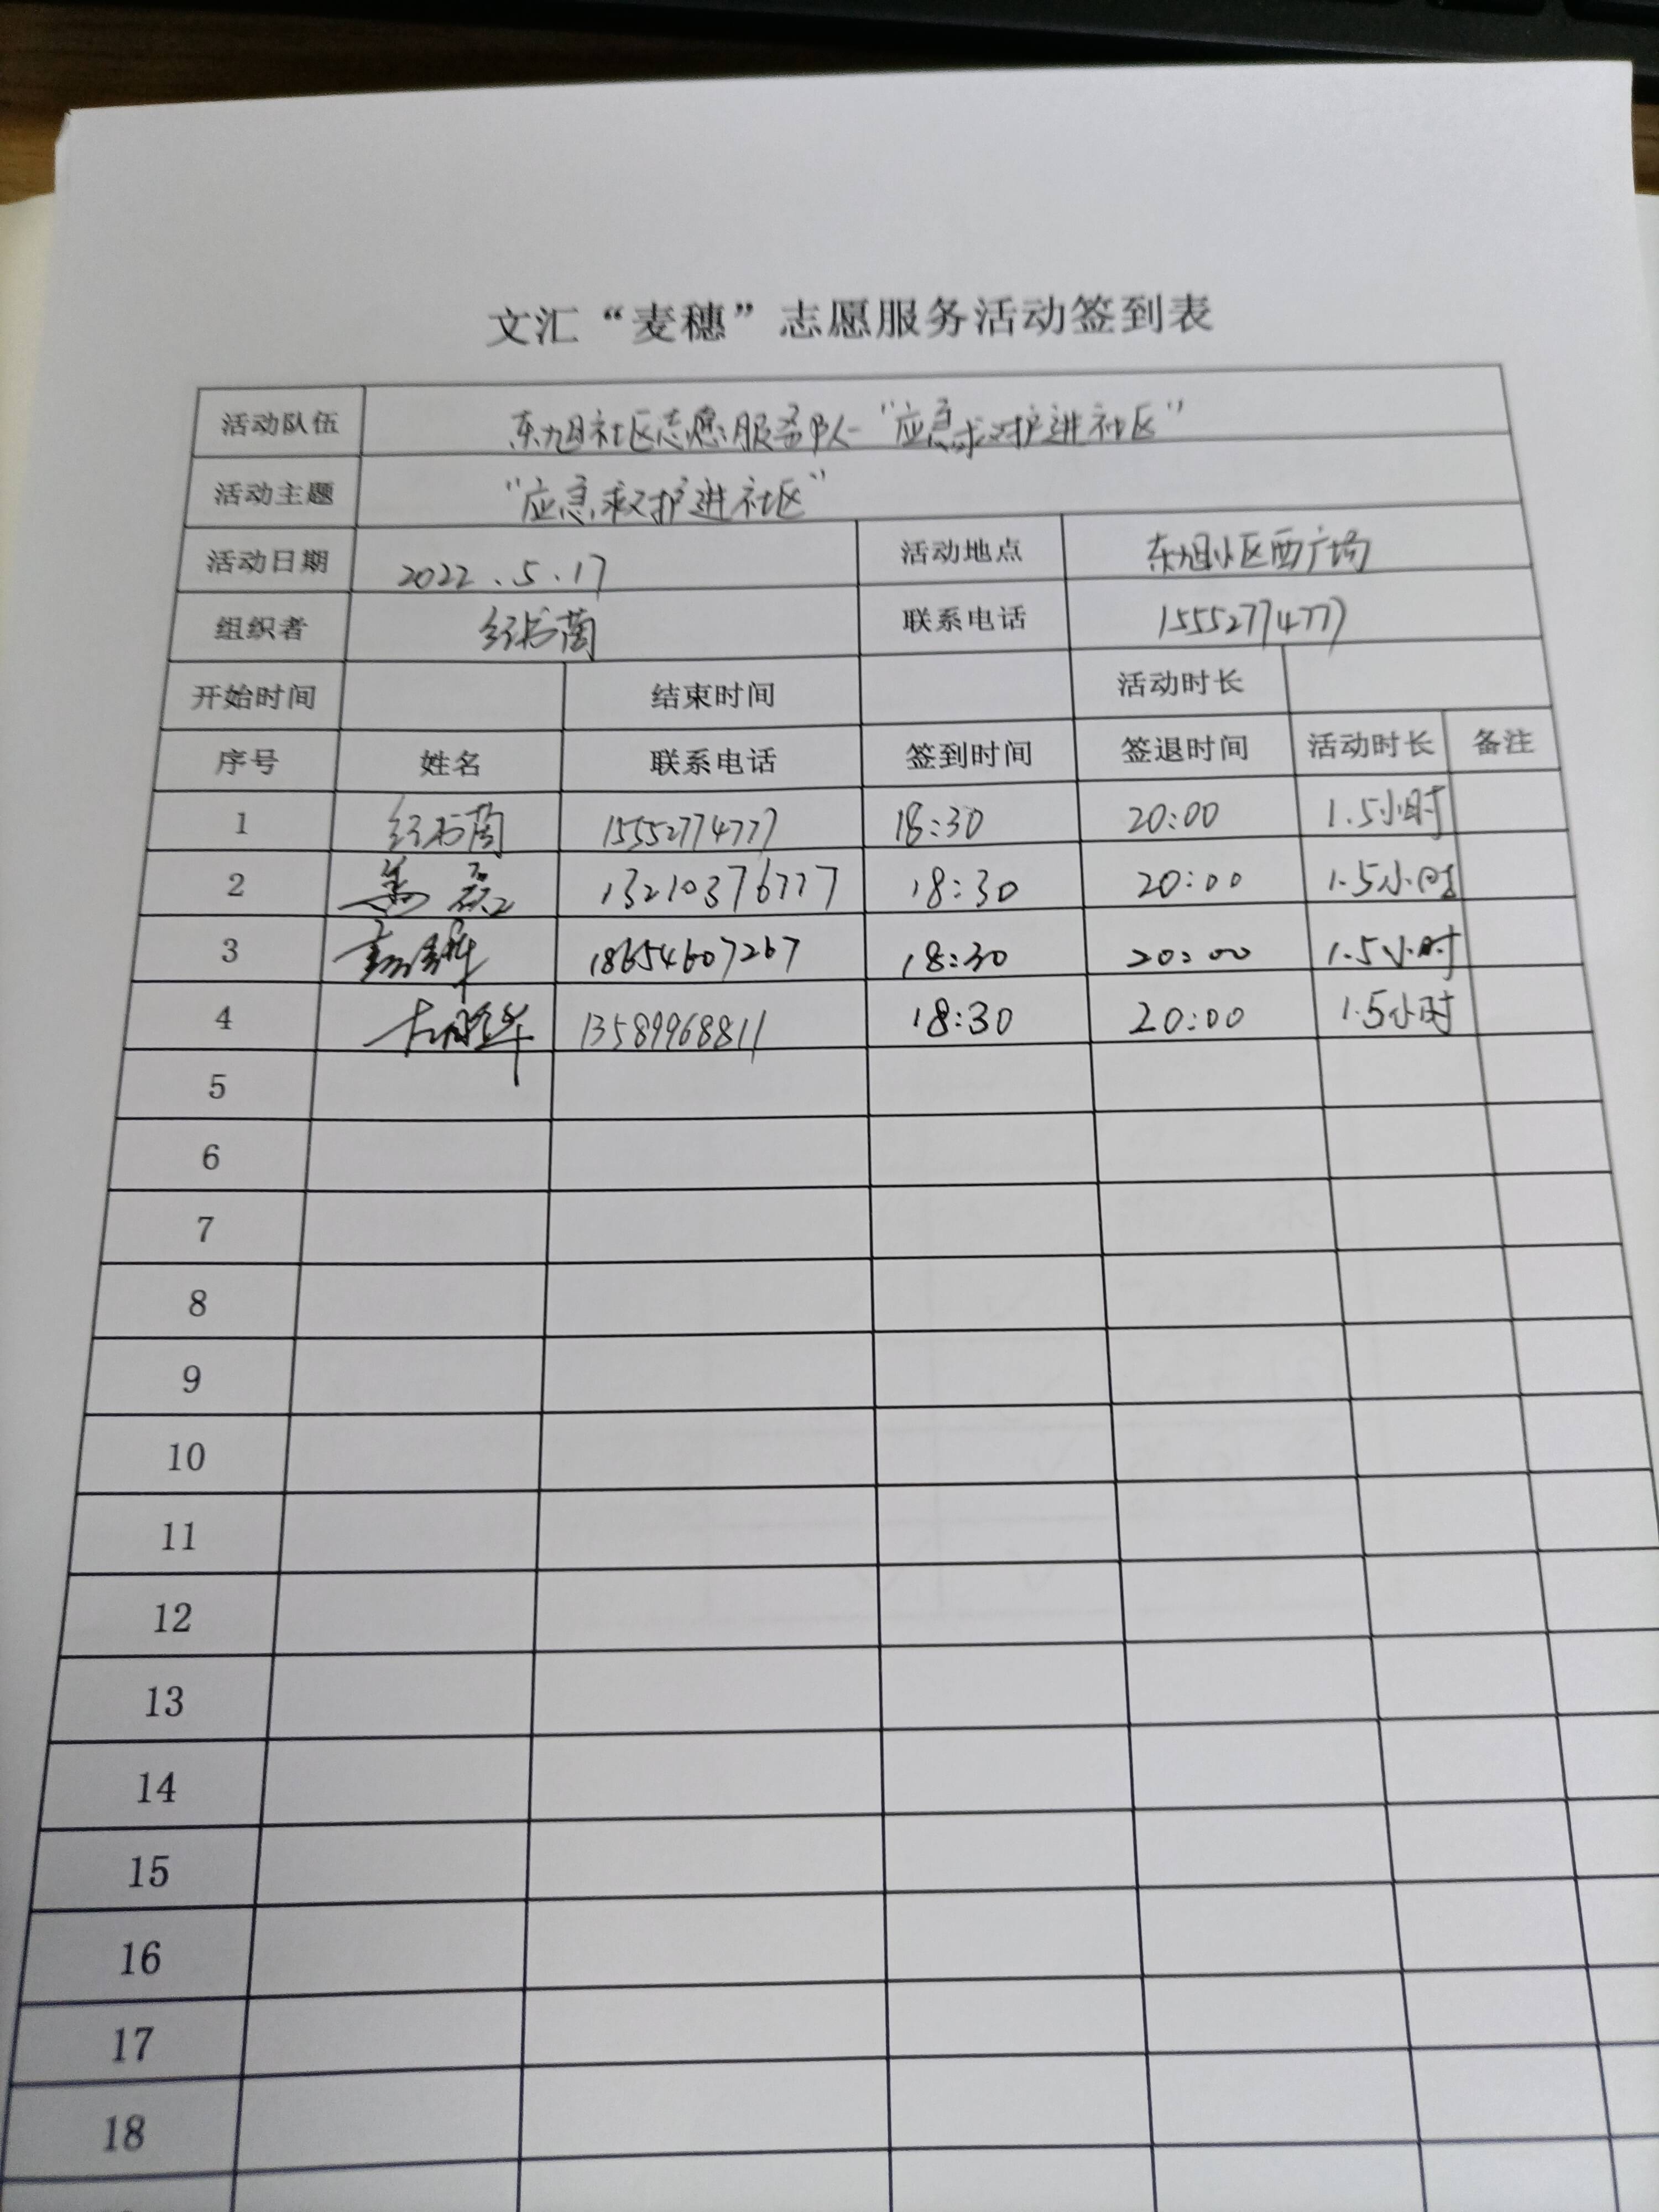 文汇“麦穗”志愿服务活动签到表
活动队伍 东旭社区志愿服务队-“应急救护进社区”
活动主题 “应急救护进社区”
活动日期 2022.5.17 活动地点 东旭小区西广场
组织者 联系电话 15552774777
开始时间 结束时间 活动时长
序号 姓名 联系电话 签到时间 签退时间 活动时长 备注
1 15552774777 18:30 20:00 1.5小时
2 13210376777 18:30 20:00 1.5小时
3 18654607267 18:30 20:00 1.5小时
4 13589968811 18:30 20:00 1.5小时
5
6
7
8
9
10
11
12
13
14
15
16
17
18